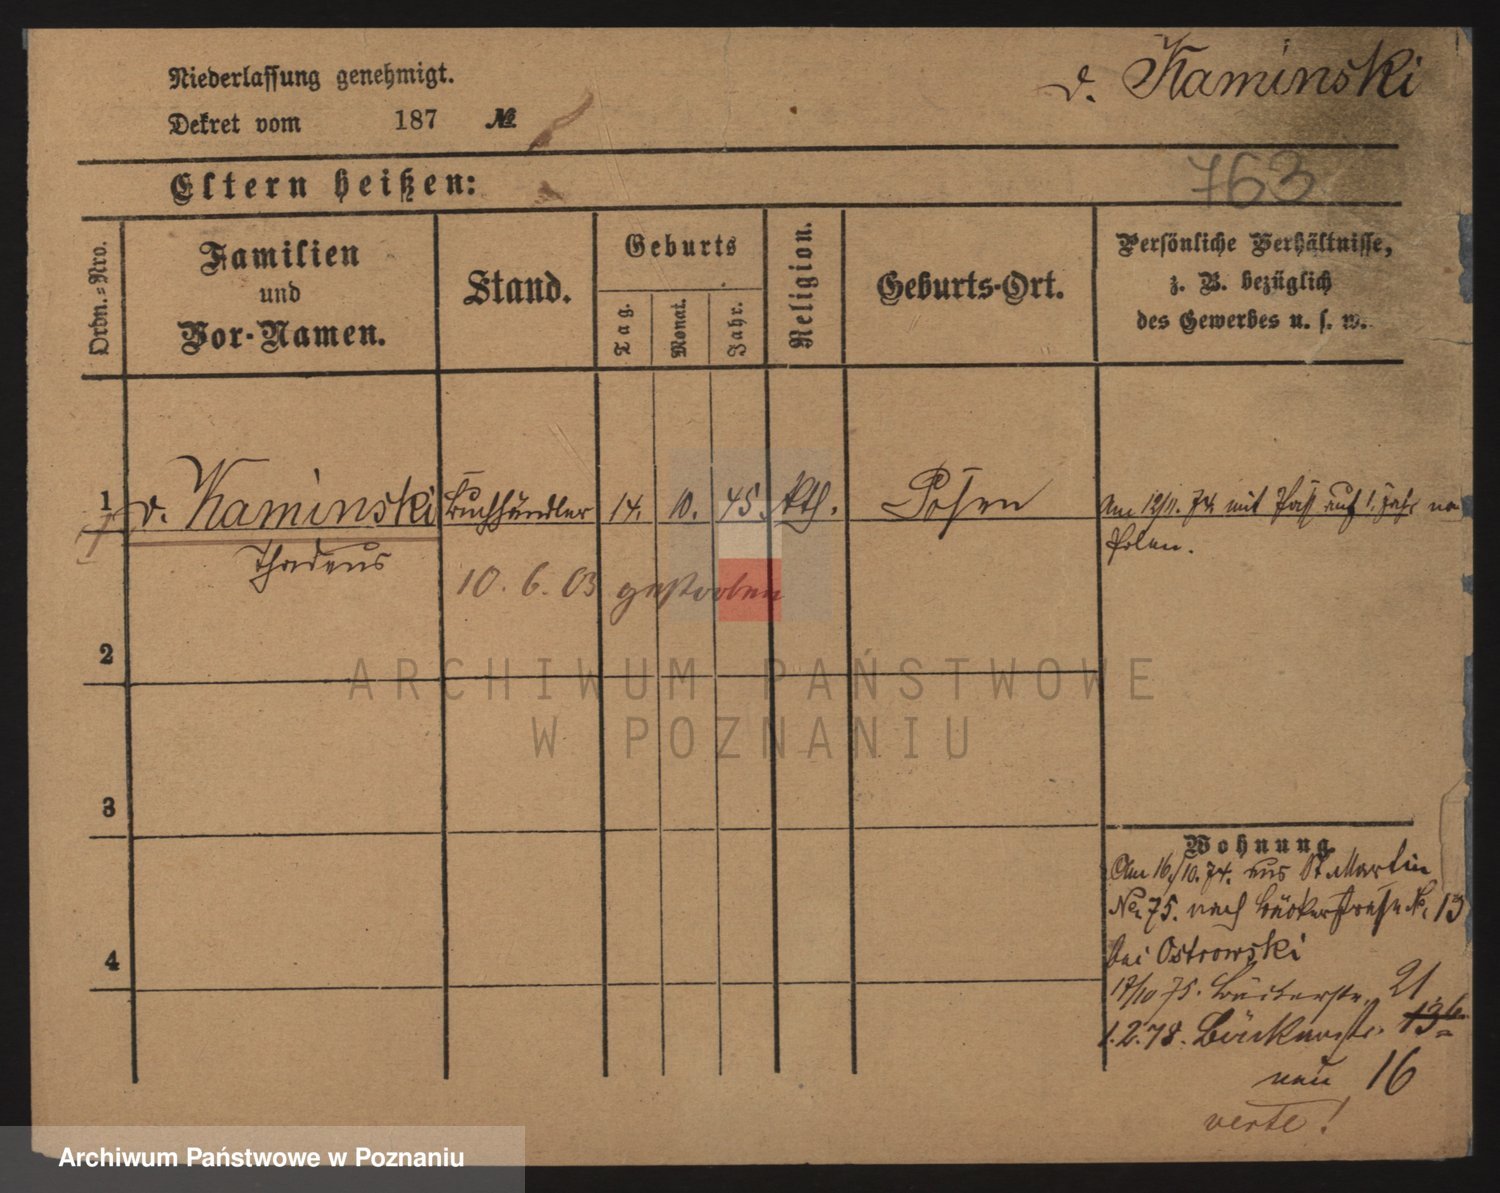 Niederlassung genehmigt.
v. Kaminski
Dekret vom 187 №
763
Eltern heißen:
Ordn.-Nro.
Familien
und
Vor-Namen.
Stand.
Geburts
Tag.
Monat.
Jahr.
Religion.
Geburts-Ort.
Persönliche Verhältnisse,
z. B. bezüglich
des Gewerbes u. s. w.
1 v. Kaminski Buchhändler 14. 10. 45. kth. Posen
Thadeus
Am 12/11. 74 mit Paß auf 1. Jahr na
Polen.
10. 6. 03 gestorben
2
3
4
Wohnung
Am 16/10. 74. aus St. Martin
No 75. nach Bäckerstraße No. 13
bei Ostrowski
17/10 75. Bäckerstr. 21
1.2.78. Bäckerstr. 13b.
neu 16
verte!
ARCHIWUM PAŃSTWOWE
W POZNANIU
Archiwum Państwowe w Poznaniu